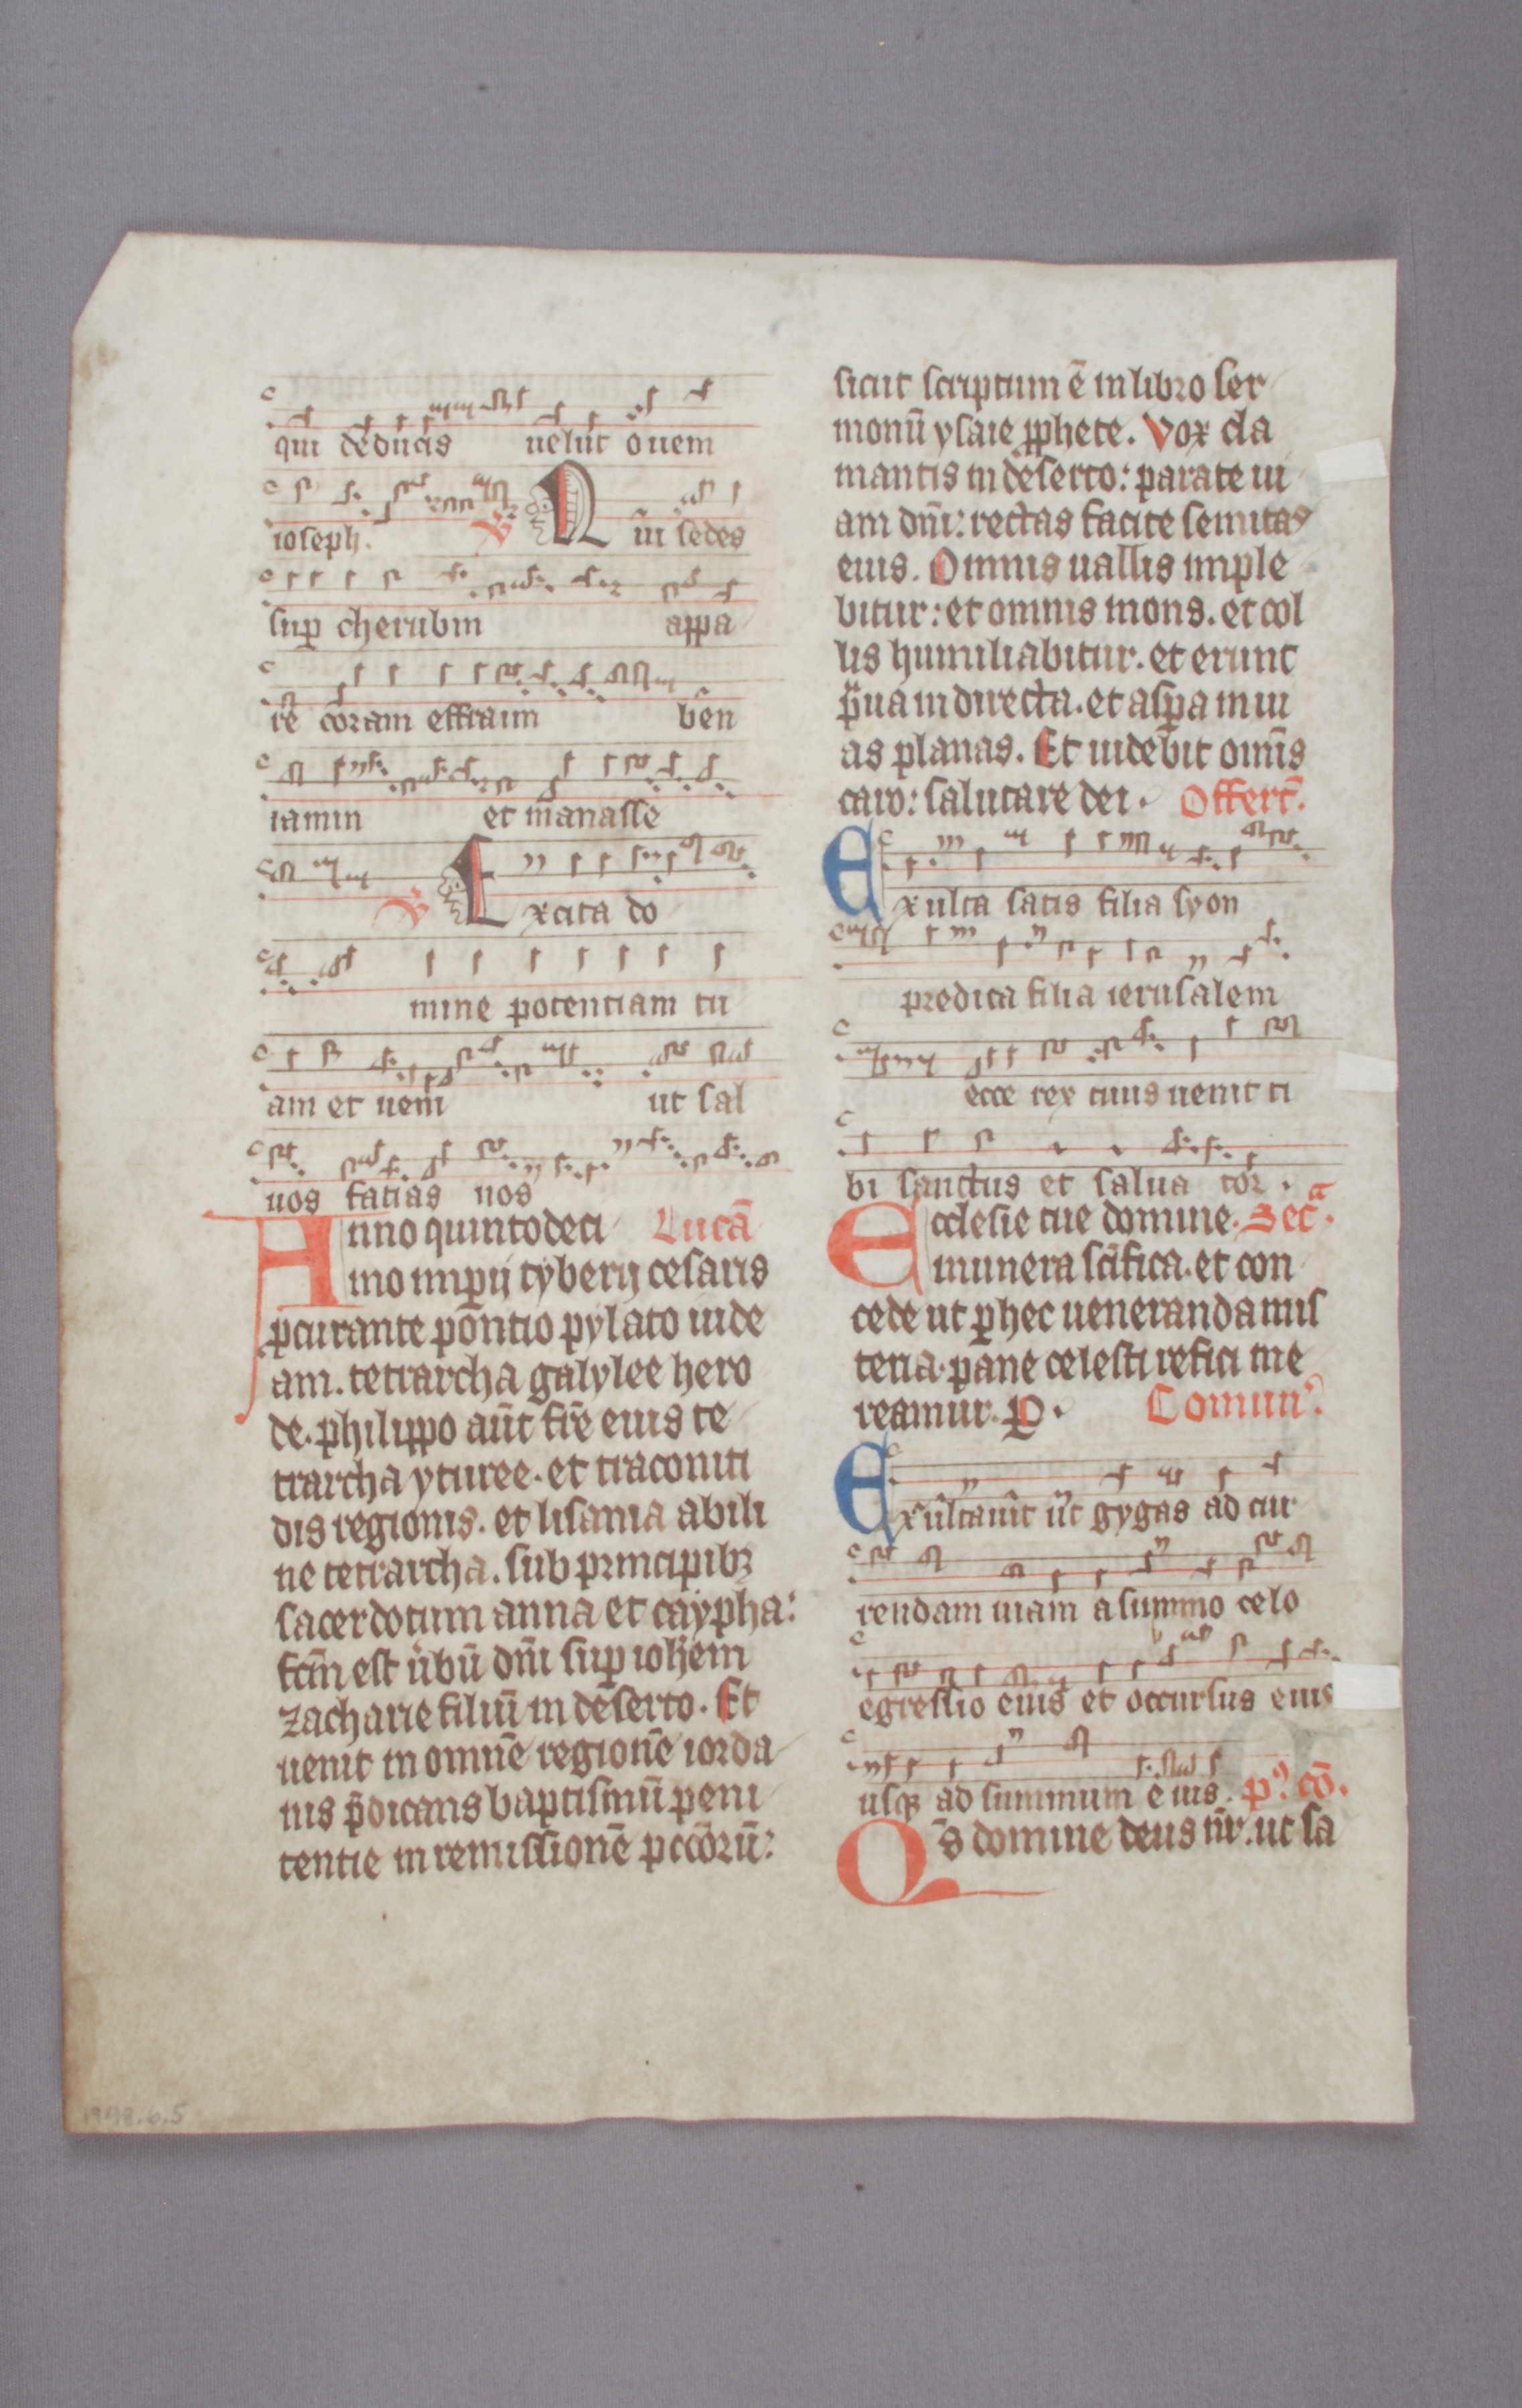 qui deducis uelut ouem
ioseph. V Qui sedes
sup cherubin appa
re coram effraim ben
iamin et manasse
V Excita do
mine potentiam tu
am et ueni ut sal
uos facias nos
Anno quintodeci Lucā
mo impij tyberij cesaris
pcurante pontio pylato iude
am. tetrarcha galylee hero
de. philippo aūt fr̄e eius te
trarcha yturee. et traconiti
dis regionis. et lisania abili
ne tetrarcha. sub principibꝫ
sacerdotum anna et caypha:
fc̄m est ūbū dn̄i sup ioh̄em
zacharie filiū in deserto. Et
uenit in omnē regionē iorda
nis p̄dicans baptismū peni
tentie in remissionē pccōrū:
sicut scriptum ē in libro ser
monū ysaie pphete. Vox cla
mantis in deserto: parate ui
am dn̄i: rectas facite semitas
eius. Omnis uallis imple
bitur: et omnis mons. et col
lis humiliabitur. et erunt
p̄ua in directa. et aspa in ui
as planas. Et uidebit omīs
caro: salutare dei. Offert̄.
Exulta satis filia syon
predica filia ierusalem
ecce rex tuus uenit ti
bi sanctus et saluator.
Ecclesie tue domine. Secᵃ.
munera sc̄ifica. et con
cede ut ꝑ hec ueneranda mis
teria. pane celesti refici me
reamur. P. Comun̄.
Exultauit ut gygas ad cur
rendam uiam a summo celo
egressio eius et occursus eius
usqꝫ ad summum eius. pꝰ cō.
Qs̄ domine deus nr̄. ut sa
1998.6.5